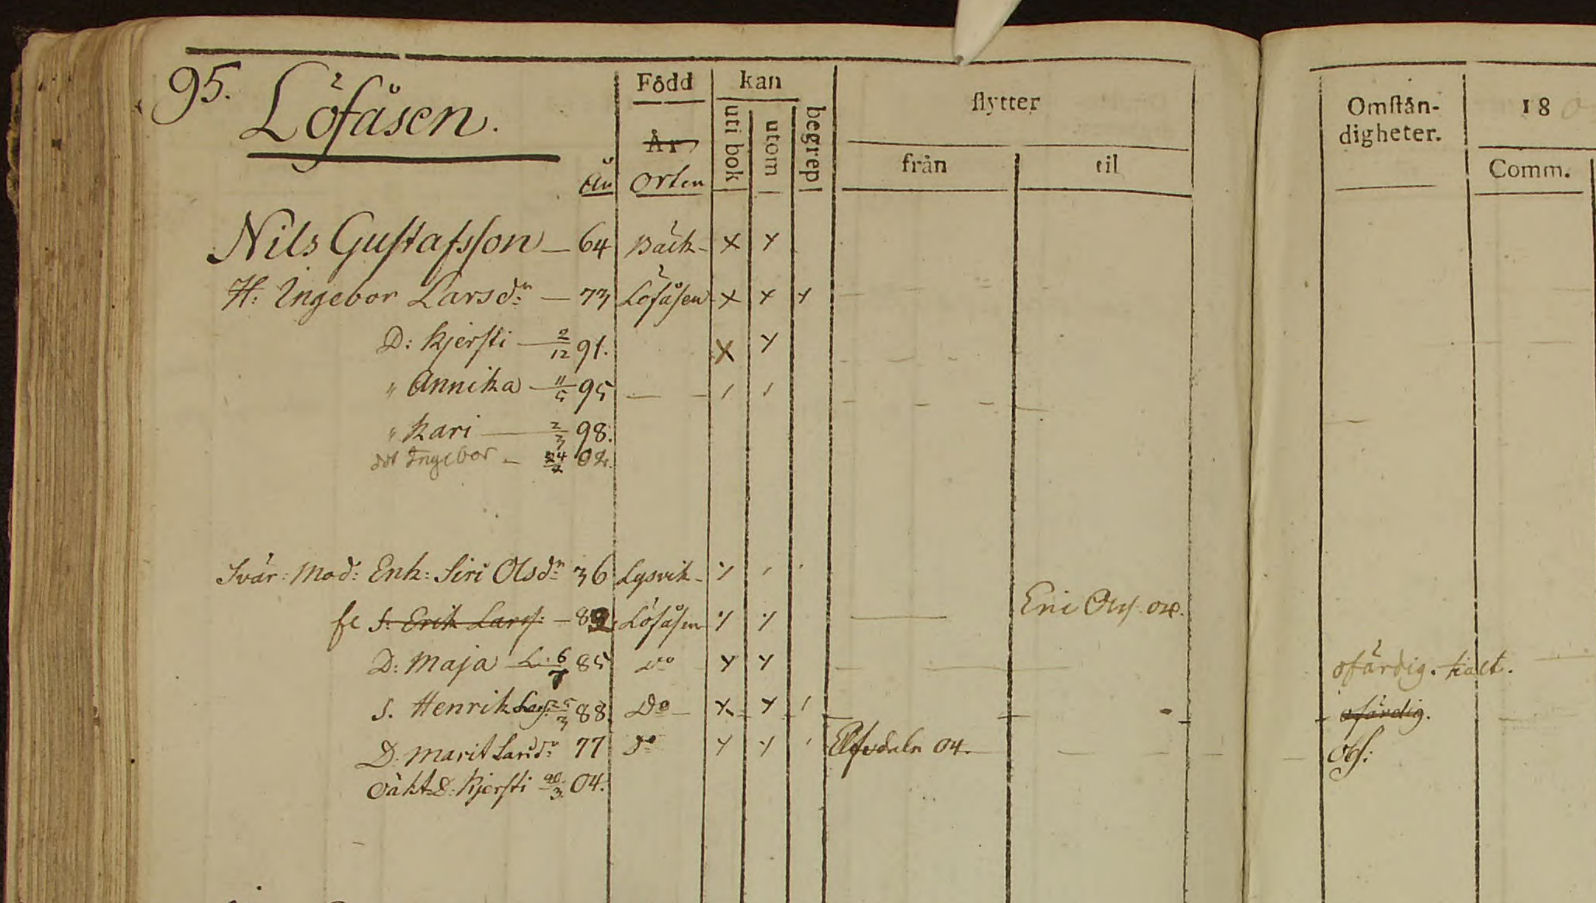 95. Löfåsen.
Född kan flytter Omstän-digheter. 18
År uti bok utom begrep från til Comm.
År Orten
Nils Gustafsson — 64 Bäck - x x
H: Ingebor Larsdr — 73 Löfåsen x x x
D: Kjersti — 2/12 91. x x
" Annika — 11/5 95
" Kari — 2/3 98.
Ingebor - 24/2 02.
Svär: Mod: Enk: Siri Olsdr 36 Lysvik -
S. Erik Lars: — 82 Löfåsen Eric
D: Maja L: 6/7 85 Do ofärdig. halt.
S. Henrik Lars: 25/3 88 Do ofärdig.
D. Marit Larsdr 77 Do Elfvdaln 04. Obs:
Oäkt. D: Kjersti 20/3 04.